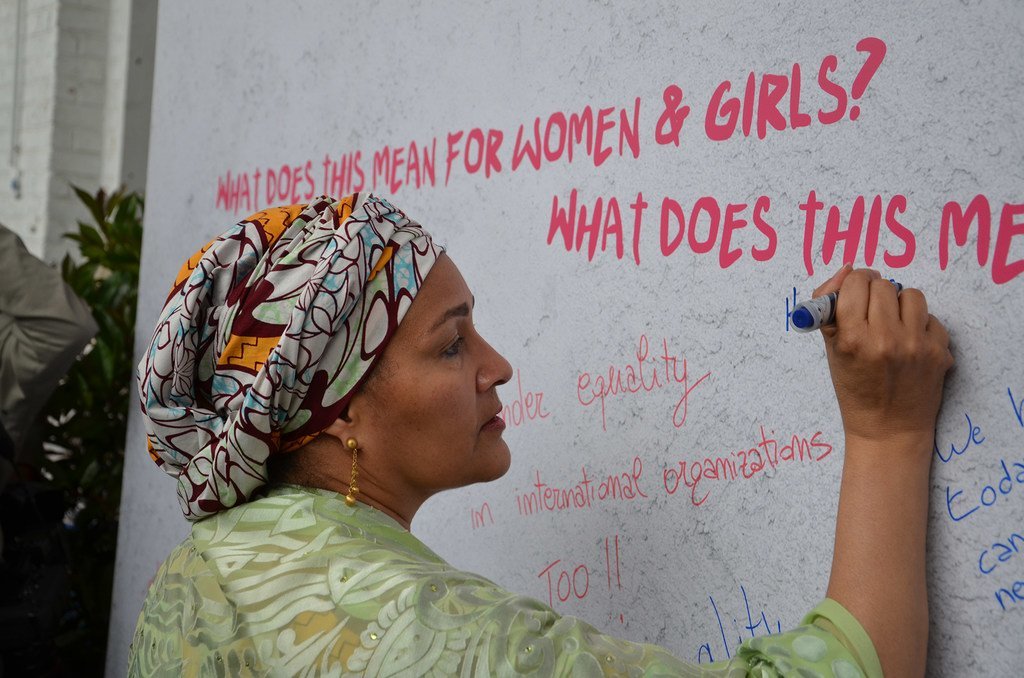 WHAT DOES THIS MEAN FOR WOMEN & GIRLS?
WHAT DOES THIS ME
nder equality
in international organizations
TOO!!
ality
We
toda
can
ne